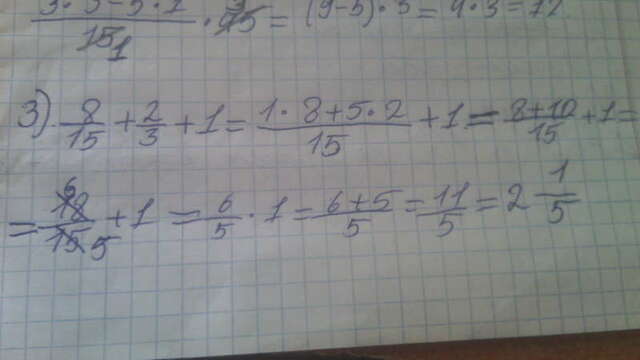 3·9-5·1/15 1 · 45 3 = (9-5)·3 = 4·3=12
3). 8/15 + 2/3 + 1 = 1·8+5·2/15 + 1 = 8+10/15 + 1 =
= 18 6/15 5 + 1 = 6/5 · 1 = 6+5/5 = 11/5 = 2 1/5